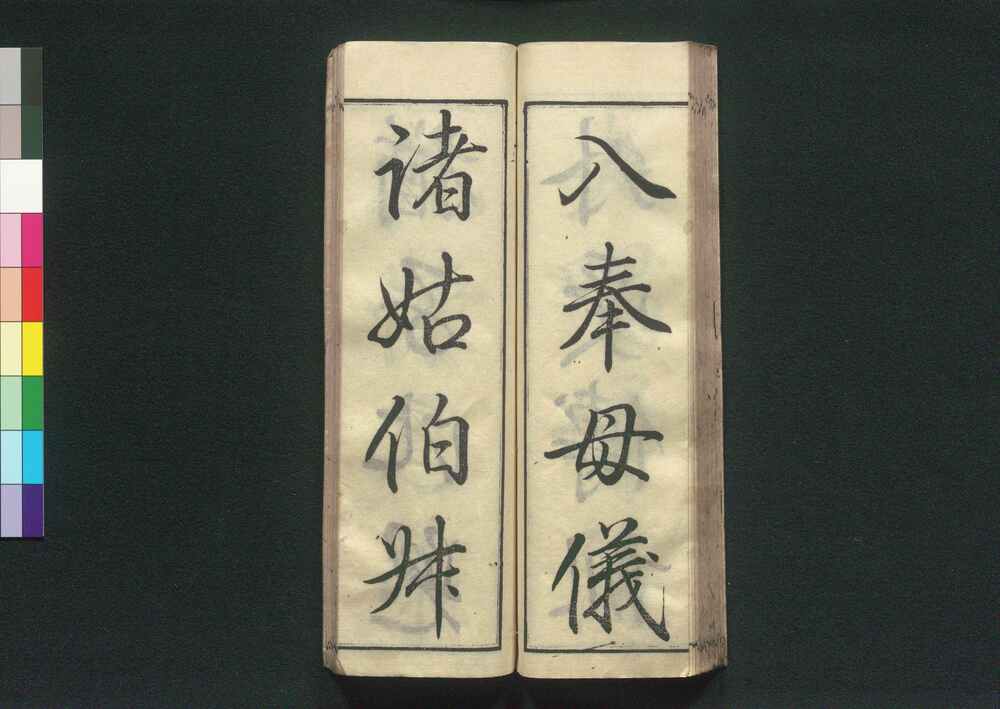 入奉母儀
諸姑伯叔